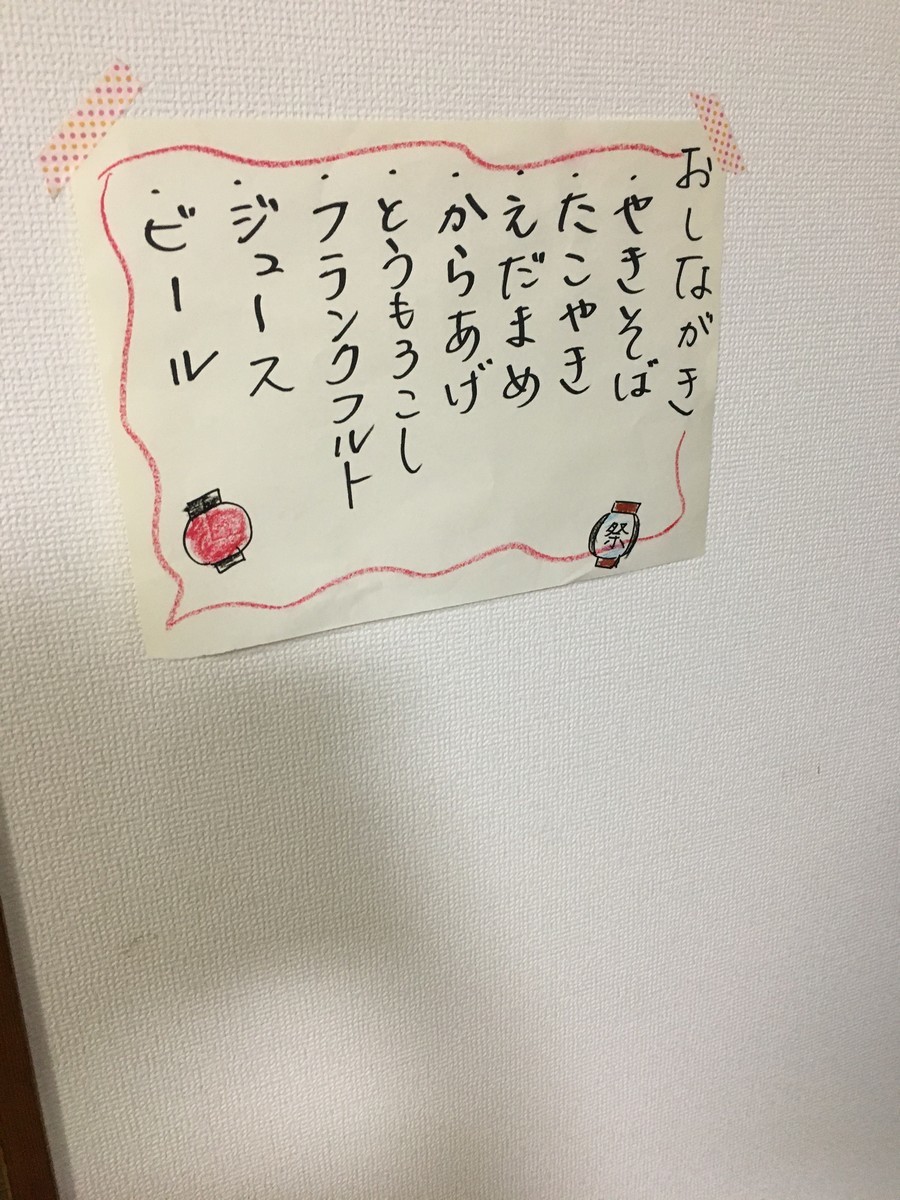 おしながき
・やきそば
・たこやき
・えだまめ
・からあげ
・とうもろこし
・フランクフルト
・ジュース
・ビール
祭